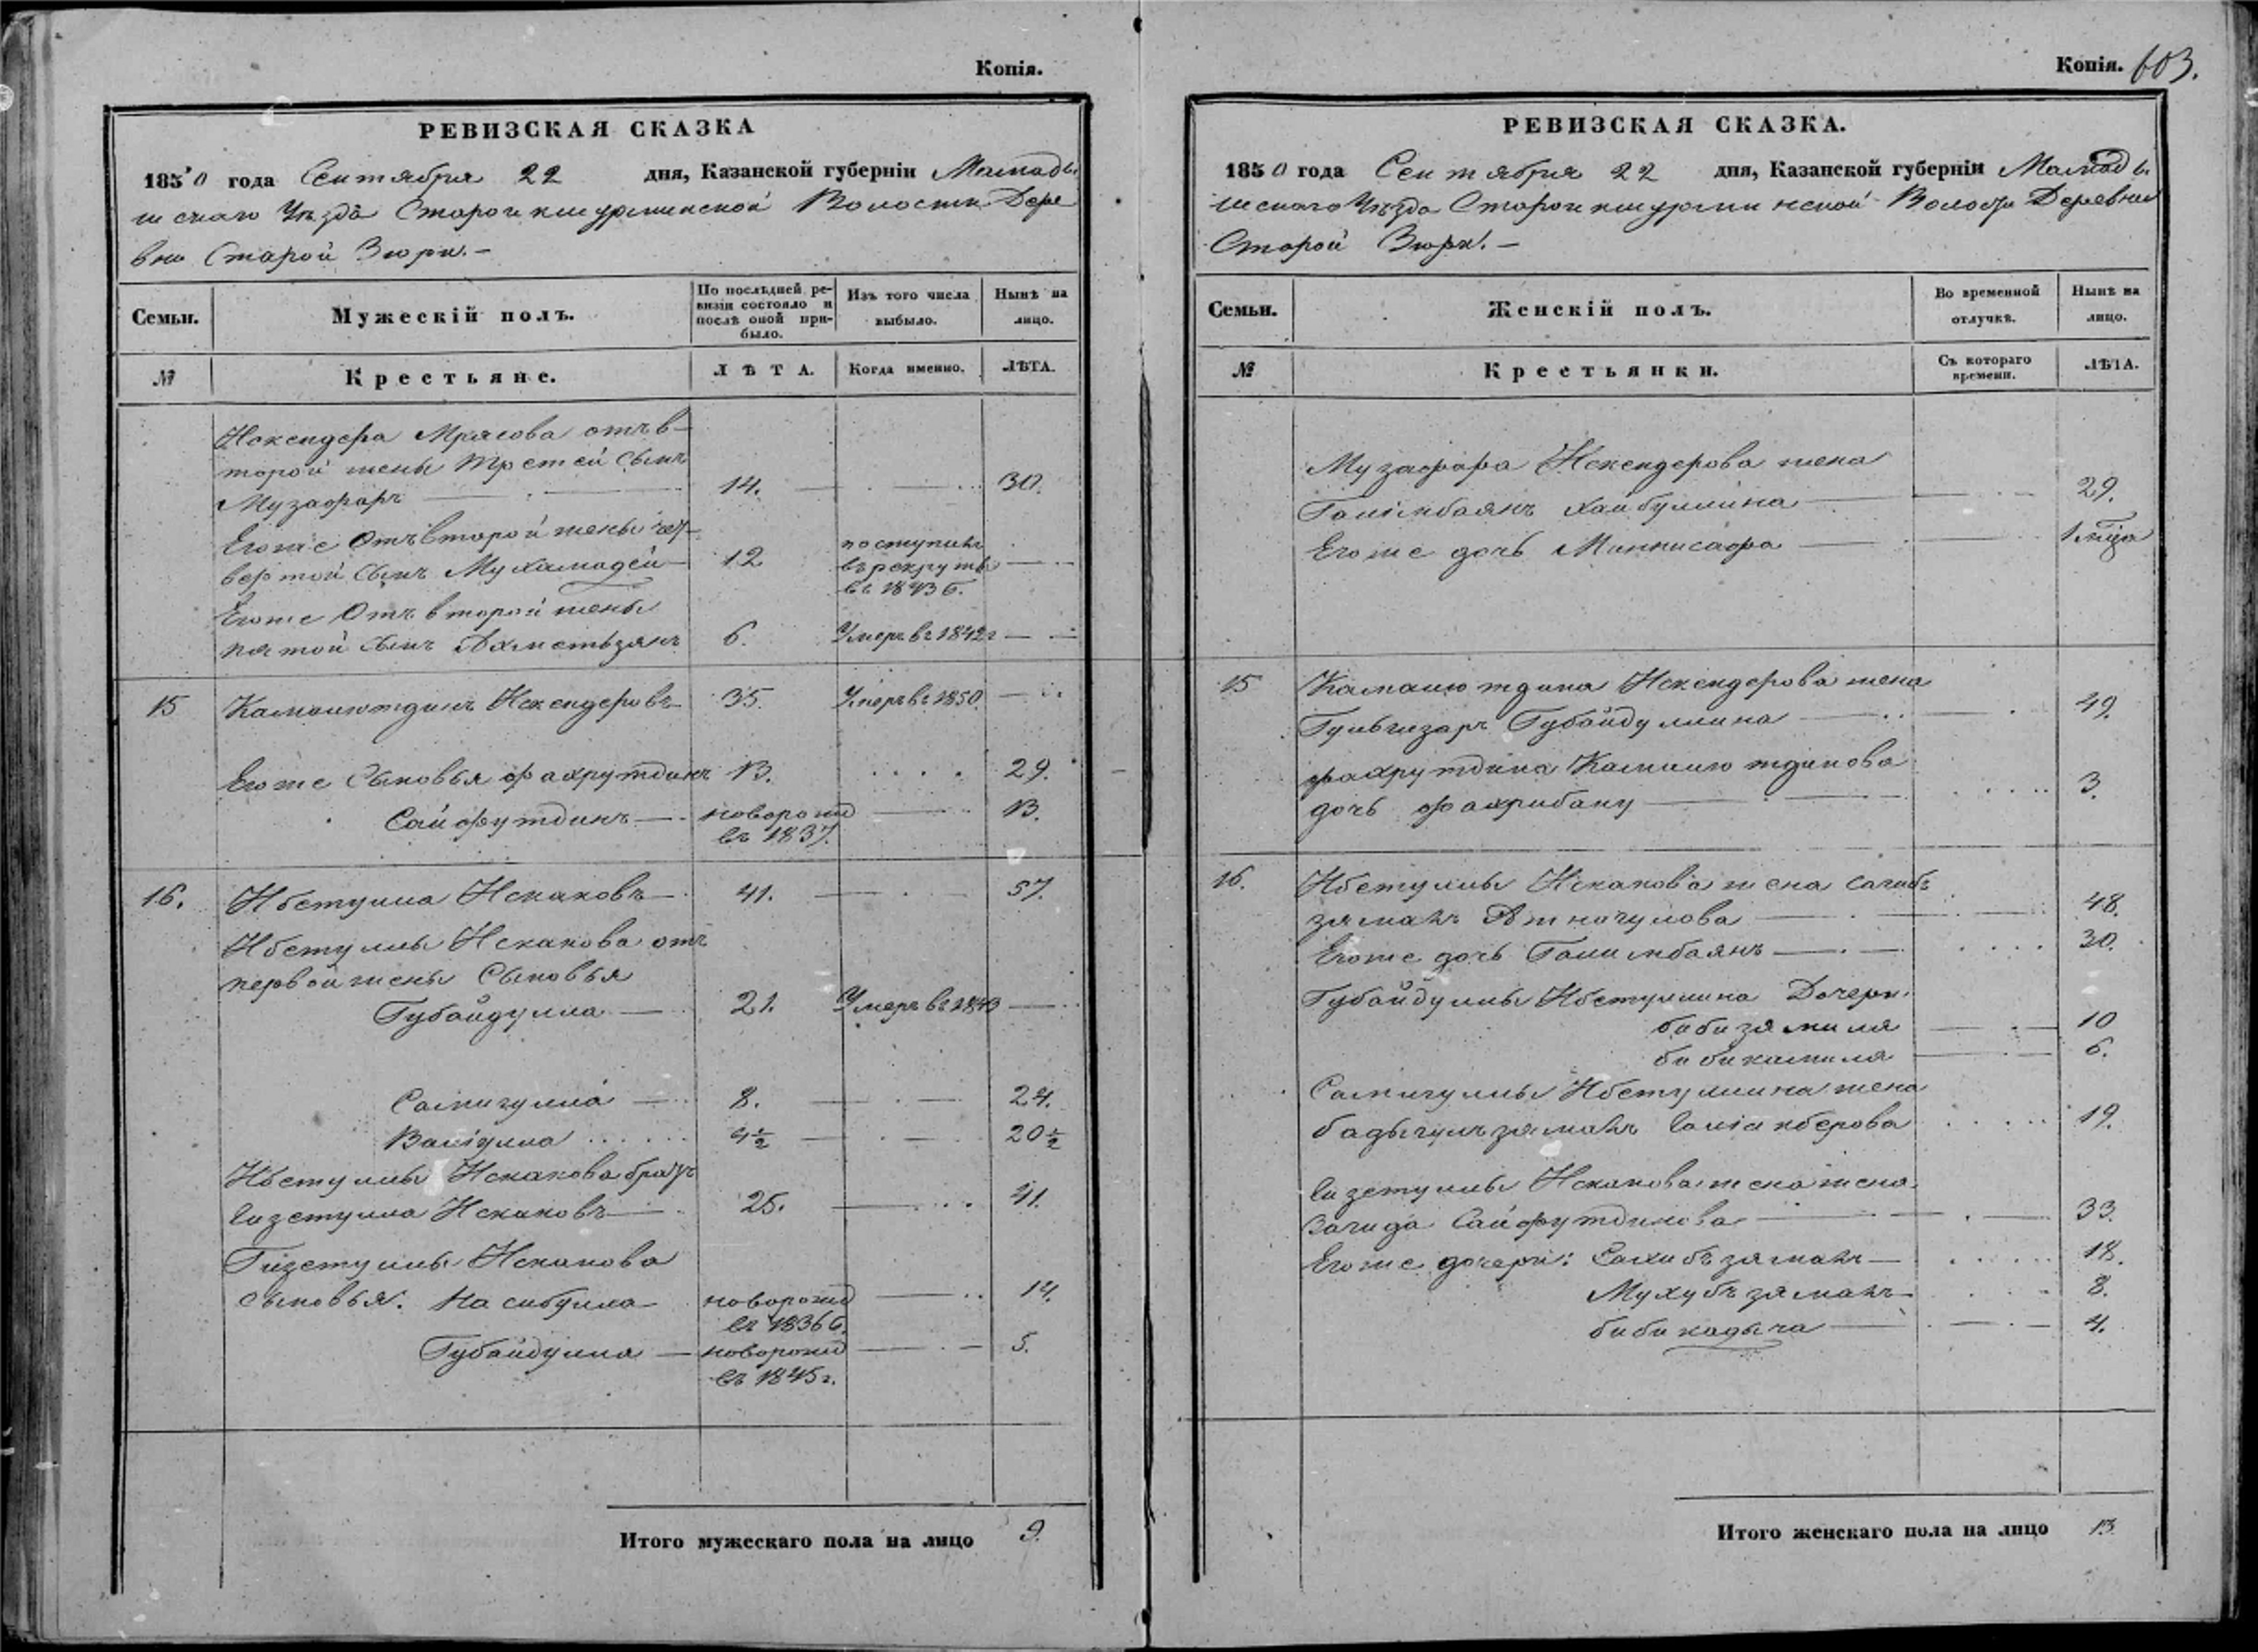 Копія.
РЕВИЗСКАЯ СКАЗКА
1850 года Сентября 22 дня, Казанской губерніи Мамады
шскаго Уѣзда Старои кшурминской Волости Дере
вни Старой Зюри. —
Семьи. Мужескій полъ. По послѣдней ревизіи состояло и послѣ оной прибыло. Изъ того числа выбыло. Нынѣ на лицо.
№ Крестьяне. ЛѢТА. Когда именно. ЛѢТА.
Искендера Мрясова отъ в-
торой жены третей сынъ
Музафаръ — 14. — 30.
Егоже Отъ второй жены чет-
вертой сынъ Мухамадей 12 поступилъ
въ рекруты
въ 1843 г.
Егоже Отъ второй жены
пятой сынъ Ахметьзянъ 6. Умеръ въ 1842 г —
15 Камалютдинъ Искендеровъ 35. Умеръ въ 1850. —
Егоже Сыновья Фахрутдинъ 13. . . . . 29.
Сайфутдинъ — новорожд — 13.
въ 1837.
16. Ибетулла Искаковъ — 41. — 57.
Ибетуллы Искакова отъ
первой жены Сыновья
Губайдулла — 21. Умеръ въ 1843 —
Самигулла — 8. — 24.
Валіулла . . . . . 4½ — 20½
Ибетуллы Искакова братъ
Гизетулла Искаковъ — 25. — 41.
Гизетуллы Искакова
сыновья: Насибулла новорожд — 14.
въ 1836 г.
Губайдулла — новорожд — 5.
въ 1845 г.
Итого мужескаго пола на лицо 9.
Копія. 603.
РЕВИЗСКАЯ СКАЗКА.
1850 года Сентября 22 дня, Казанской губерніи Мамады
шскаго Уѣзда Старои кшурминской Волости Деревни
Старой Зюри. —
Семьи. Женскій полъ. Во временной отлучкѣ. Нынѣ на лицо.
№ Крестьянки. Съ котораго времени. ЛѢТА.
Музафара Искендерова жена
Галимбаянъ Хайбуллина — 29.
Егоже дочь Миннисафа —
15 Камалютдина Искендерова жена
Гульгизаръ Губайдуллина — 49.
Фахрутдина Камалютдинова
дочь Фахрибану — 3.
16. Ибетуллы Искакова жена Сагибъ
заманъ Атнагулова — 48.
Егоже дочь Галимбаянъ — 30.
Губайдуллы Ибетуллина Дочери.
бибизямиля — 10
бибикамиля — 6.
Самигуллы Ибетуллина жена
бадыгулъзяманъ — 19.
Гизетуллы Искакова жена жена
Загида Сайфутдинова — 33.
Егоже дочери: Сахибъзяманъ — 18.
Мухубъзяманъ — 8.
бибихадыча — 4.
Итого женскаго пола на лицо 13